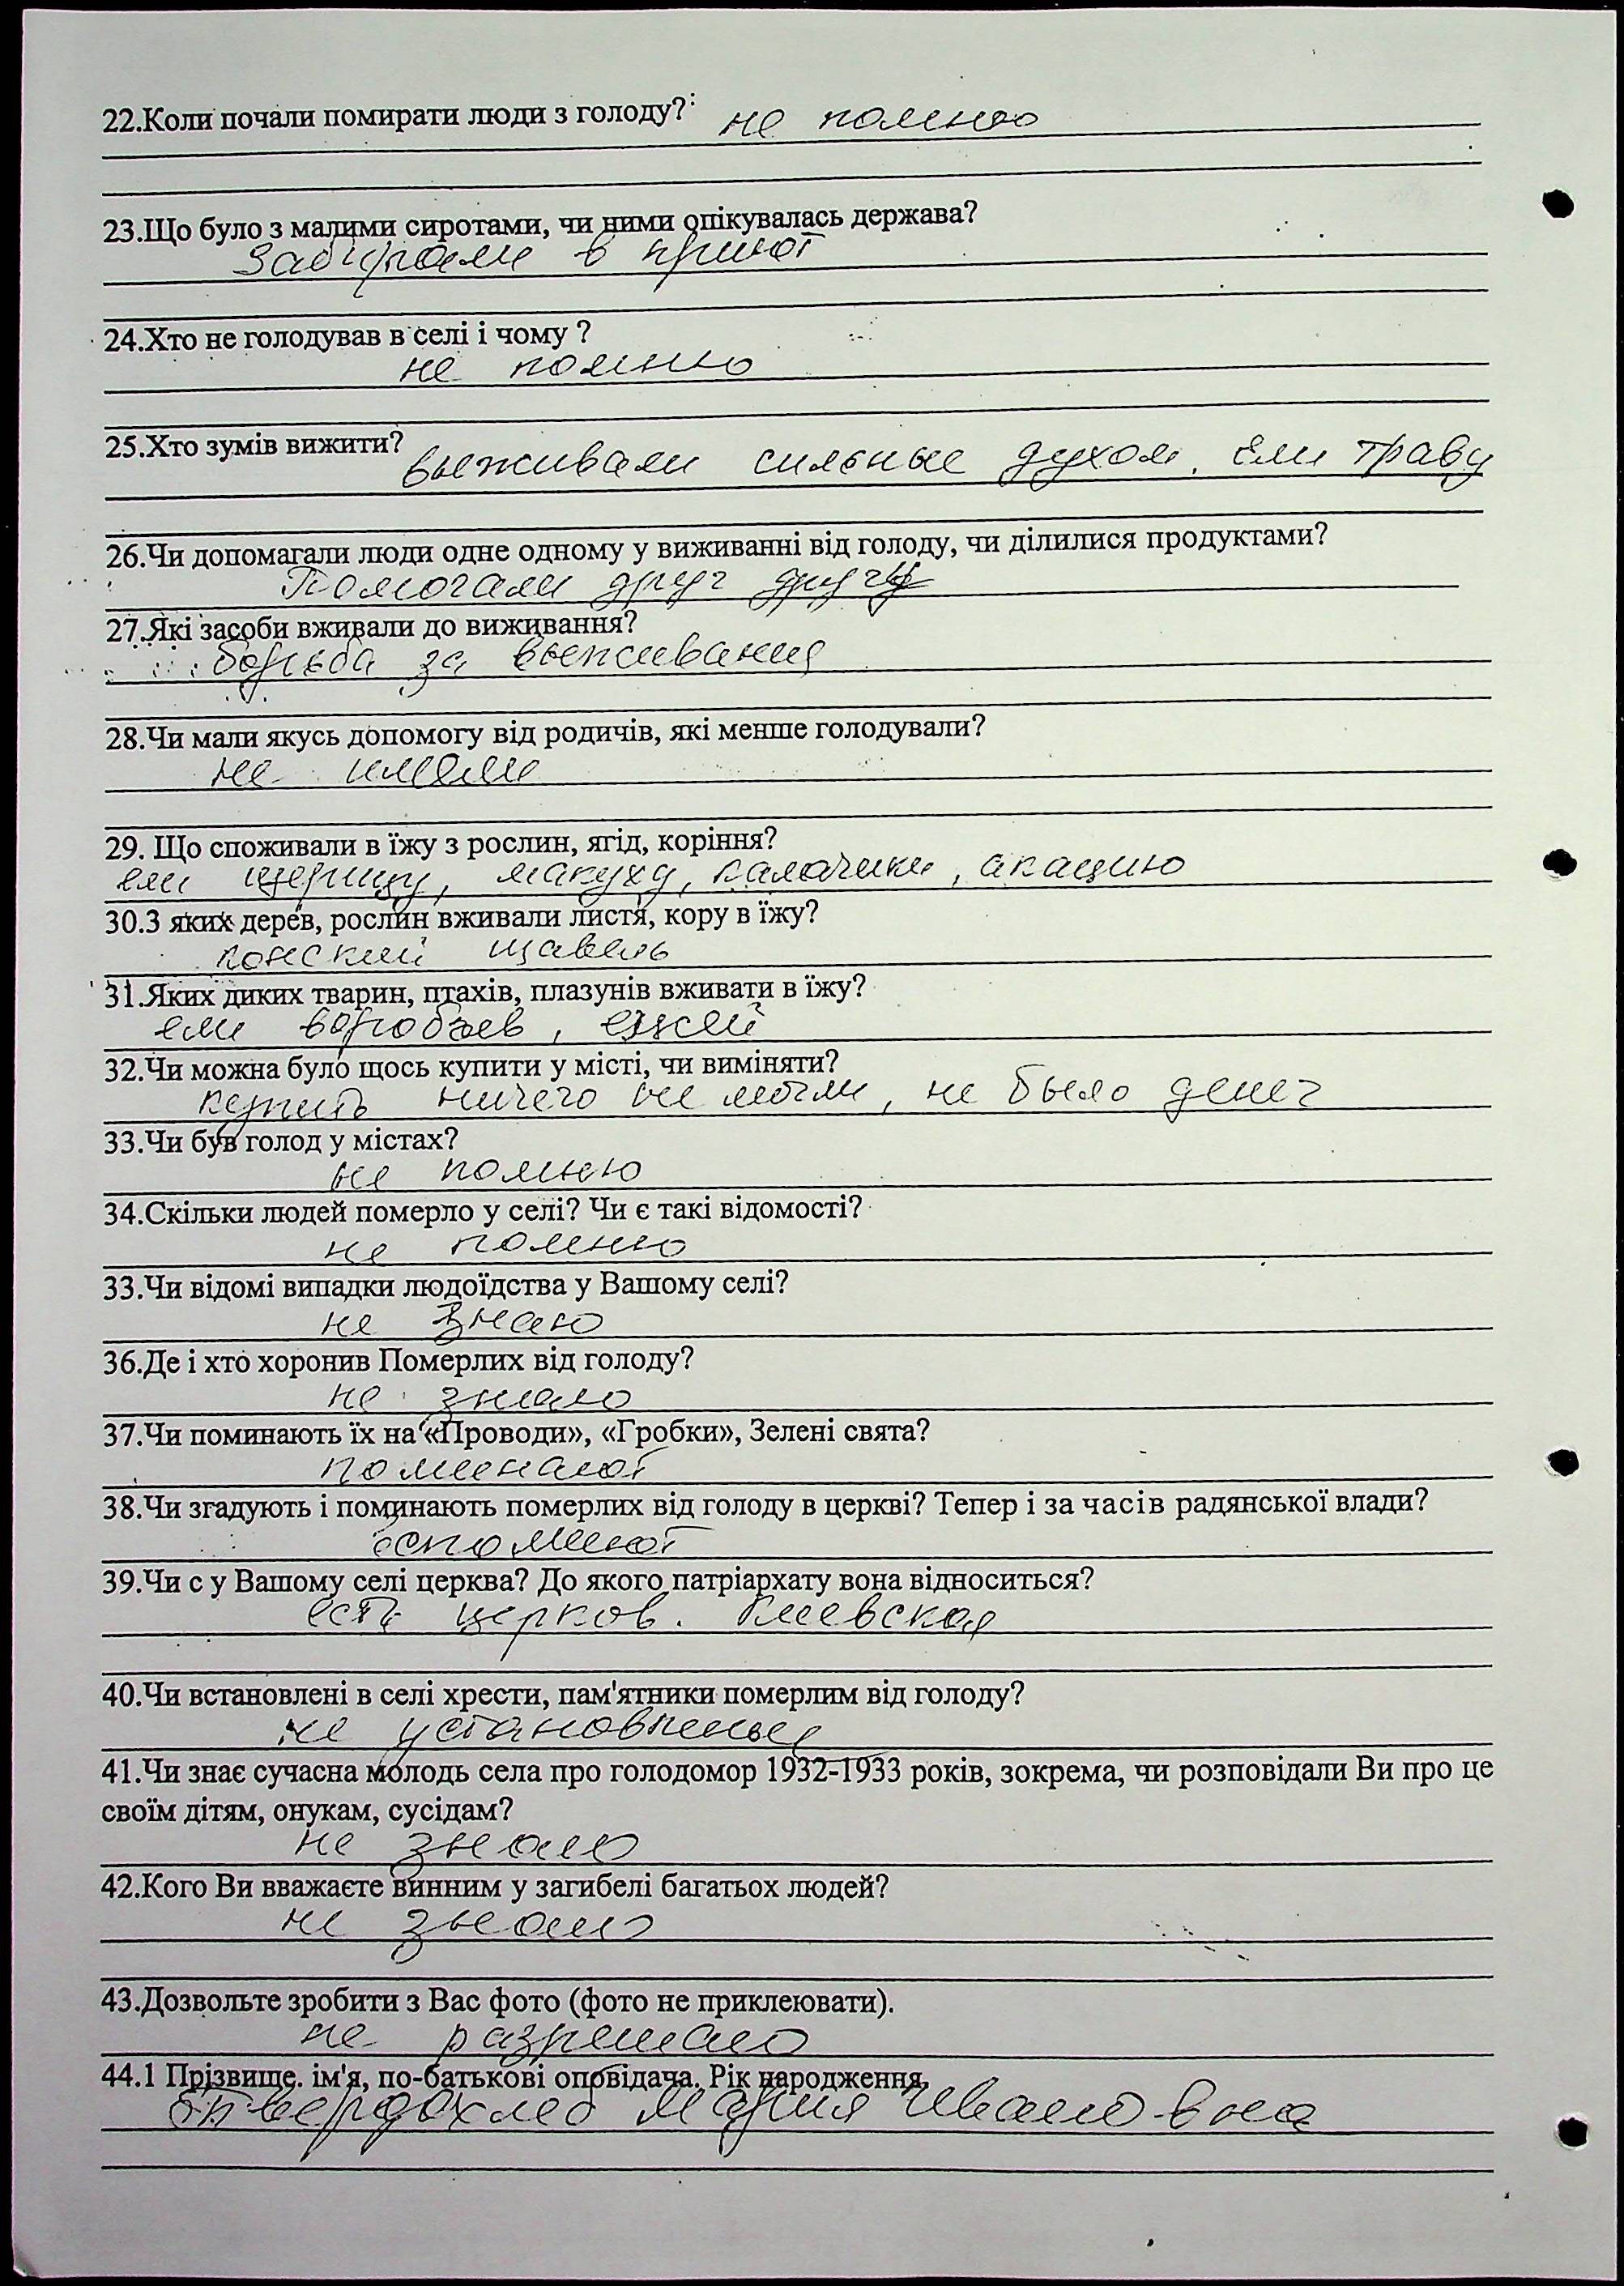 22.Коли почали помирати люди з голоду? не помню
23.Що було з малими сиротами, чи ними опікувалась держава?
Забирали в приют
24.Хто не голодував в селі і чому ?
не помню
25.Хто зумів вижити? выживали сильные духом. Ели траву
26.Чи допомагали люди одне одному у виживанні від голоду, чи ділилися продуктами?
Помогали друг другу
27.Які засоби вживали до виживання?
борьба за выживания
28.Чи мали якусь допомогу від родичів, які менше голодували?
не имели
29. Що споживали в їжу з рослин, ягід, коріння?
ели щерицу, макуху, калачики, акацию
30.З яких дерев, рослин вживали листя, кору в їжу?
конский щавель
31.Яких диких тварин, птахів, плазунів вживати в їжу?
ели воробъев, ежей
32.Чи можна було щось купити у місті, чи виміняти?
купить ничего не могли, не было денег
33.Чи був голод у містах?
не помню
34.Скільки людей померло у селі? Чи є такі відомості?
не помню
33.Чи відомі випадки людоїдства у Вашому селі?
не знаю
36.Де і хто хоронив Померлих від голоду?
не знаю
37.Чи поминають їх на «Проводи», «Гробки», Зелені свята?
поминают
38.Чи згадують і поминають померлих від голоду в церкві? Тепер і за часів радянської влади?
39.Чи с у Вашому селі церква? До якого патріархату вона відноситься?
есть церков. Киевская
40.Чи встановлені в селі хрести, пам'ятники померлим від голоду?
не установленые
41.Чи знає сучасна молодь села про голодомор 1932-1933 років, зокрема, чи розповідали Ви про це
своїм дітям, онукам, сусідам?
не знаю
42.Кого Ви вважаєте винним у загибелі багатьох людей?
не знаю
43.Дозвольте зробити з Вас фото (фото не приклеювати).
не разрешаю
44.1 Прізвище. ім'я, по-батькові оповідача. Рік народження.
Твердохлеб Мария Ивановна